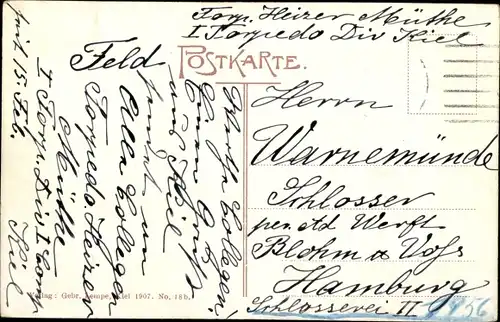 Torp. Heizer Müthe
I Torpedo Div Kiel
Feld
POSTKARTE.
Herrn
Warnemünde
Schlosser
per. Ad Werft
Blohm & Voss
Hamburg
Schlosserei II
Werte Collegen!
Einen Gruß
aus Kiel
an
Alle Collegen
Torpedo Heizer
Müthe
I Torp. Div I Comp
Kiel
Verlag: Gebr. Lempe, Kiel 1907. No. 18b.